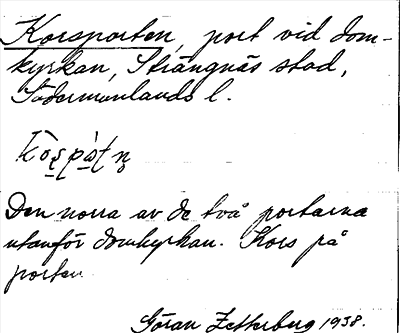 Korsporten, port vid dom-
kyrkan, Strängnäs stad,
Södermanlands l.
Den norra av de två portarna
utanför domkyrkan. Kors på
porten.
Göran Zetterberg 1938.